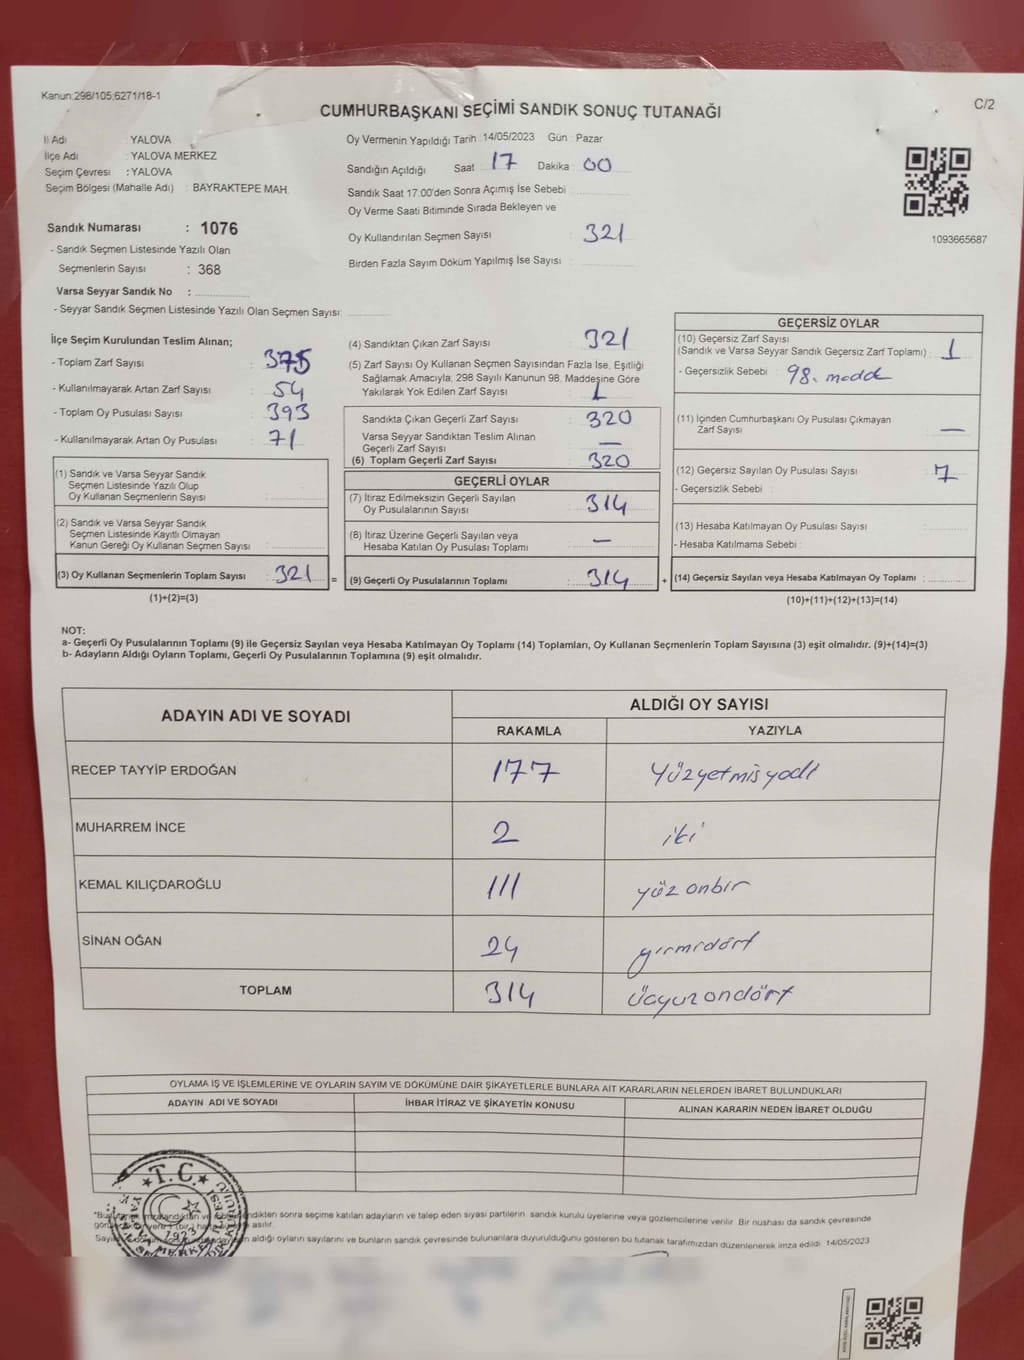 Kanun:298/105;6271/18-1
C/2
CUMHURBAŞKANI SEÇİMİ SANDIK SONUÇ TUTANAĞI
İl Adı : YALOVA
İlçe Adı : YALOVA MERKEZ
Seçim Çevresi : YALOVA
Seçim Bölgesi (Mahalle Adı) : BAYRAKTEPE MAH.
Sandık Numarası : 1076
- Sandık Seçmen Listesinde Yazılı Olan
Seçmenlerin Sayısı : 368
Varsa Seyyar Sandık No :
- Seyyar Sandık Seçmen Listesinde Yazılı Olan Seçmen Sayısı:
Oy Vermenin Yapıldığı Tarih : 14/05/2023 Gün : Pazar
Sandığın Açıldığı Saat : 17 Dakika : 00
Sandık Saat 17:00'den Sonra Açımış İse Sebebi :
Oy Verme Saati Bitiminde Sırada Bekleyen ve
Oy Kullandırılan Seçmen Sayısı : 321
Birden Fazla Sayım Döküm Yapılmış İse Sayısı :
1093665687
İlçe Seçim Kurulundan Teslim Alınan;
- Toplam Zarf Sayısı : 375
- Kullanılmayarak Artan Zarf Sayısı : 54
- Toplam Oy Pusulası Sayısı : 393
- Kullanılmayarak Artan Oy Pusulası : 71
(1) Sandık ve Varsa Seyyar Sandık
Seçmen Listesinde Yazılı Olup
Oy Kullanan Seçmenlerin Sayısı :
(2) Sandık ve Varsa Seyyar Sandık
Seçmen Listesinde Kayıtlı Olmayan
Kanun Gereği Oy Kullanan Seçmen Sayısı :
(3) Oy Kullanan Seçmenlerin Toplam Sayısı : 321 =
(1)+(2)=(3)
(4) Sandıktan Çıkan Zarf Sayısı : 321
(5) Zarf Sayısı Oy Kullanan Seçmen Sayısından Fazla İse, Eşitliği
Sağlamak Amacıyla; 298 Sayılı Kanunun 98. Maddesine Göre
Yakılarak Yok Edilen Zarf Sayısı : 1
Sandıkta Çıkan Geçerli Zarf Sayısı : 320
Varsa Seyyar Sandıktan Teslim Alınan
Geçerli Zarf Sayısı : —
(6) Toplam Geçerli Zarf Sayısı : 320
GEÇERLİ OYLAR
(7) İtiraz Edilmeksizin Geçerli Sayılan
Oy Pusulalarının Sayısı : 314
(8) İtiraz Üzerine Geçerli Sayılan veya
Hesaba Katılan Oy Pusulası Toplamı : —
(9) Geçerli Oy Pusulalarının Toplamı : 314 +
GEÇERSİZ OYLAR
(10) Geçersiz Zarf Sayısı
(Sandık ve Varsa Seyyar Sandık Geçersiz Zarf Toplamı) : 1
- Geçersizlik Sebebi : 98. madde
(11) İçinden Cumhurbaşkanı Oy Pusulası Çıkmayan
Zarf Sayısı : —
(12) Geçersiz Sayılan Oy Pusulası Sayısı : 7
- Geçersizlik Sebebi :
(13) Hesaba Katılmayan Oy Pusulası Sayısı :
- Hesaba Katılmama Sebebi :
(14) Geçersiz Sayılan veya Hesaba Katılmayan Oy Toplamı :
(10)+(11)+(12)+(13)=(14)
NOT:
a- Geçerli Oy Pusulalarının Toplamı (9) ile Geçersiz Sayılan veya Hesaba Katılmayan Oy Toplamı (14) Toplamları, Oy Kullanan Seçmenlerin Toplam Sayısına (3) eşit olmalıdır. (9)+(14)=(3)
b- Adayların Aldığı Oyların Toplamı, Geçerli Oy Pusulalarının Toplamına (9) eşit olmalıdır.
ADAYIN ADI VE SOYADI
ALDIĞI OY SAYISI
RAKAMLA YAZIYLA
RECEP TAYYİP ERDOĞAN 177 yüzyetmişyedi
MUHARREM İNCE 2 iki
KEMAL KILIÇDAROĞLU 111 yüzonbir
SİNAN OĞAN 24 yirmidört
TOPLAM 314 üçyüzondört
OYLAMA İŞ VE İŞLEMLERİNE VE OYLARIN SAYIM VE DÖKÜMÜNE DAİR ŞİKAYETLERLE BUNLARA AİT KARARLARIN NELERDEN İBARET BULUNDUKLARI
ADAYIN ADI VE SOYADI İHBAR İTİRAZ VE ŞİKAYETİN KONUSU ALINAN KARARIN NEDEN İBARET OLDUĞU
T.C.
1923
sonra seçime katılan adayların ve talep eden siyasi partilerin sandık kurulu üyelerine veya gözlemcilerine verilir. Bir nushası da sandık çevresinde
asılır.
aldığı oyların sayılarını ve bunların sandık çevresinde bulunanlara duyurulduğunu gösteren bu tutanak tarafımızdan düzenlenerek imza edildi. 14/05/2023